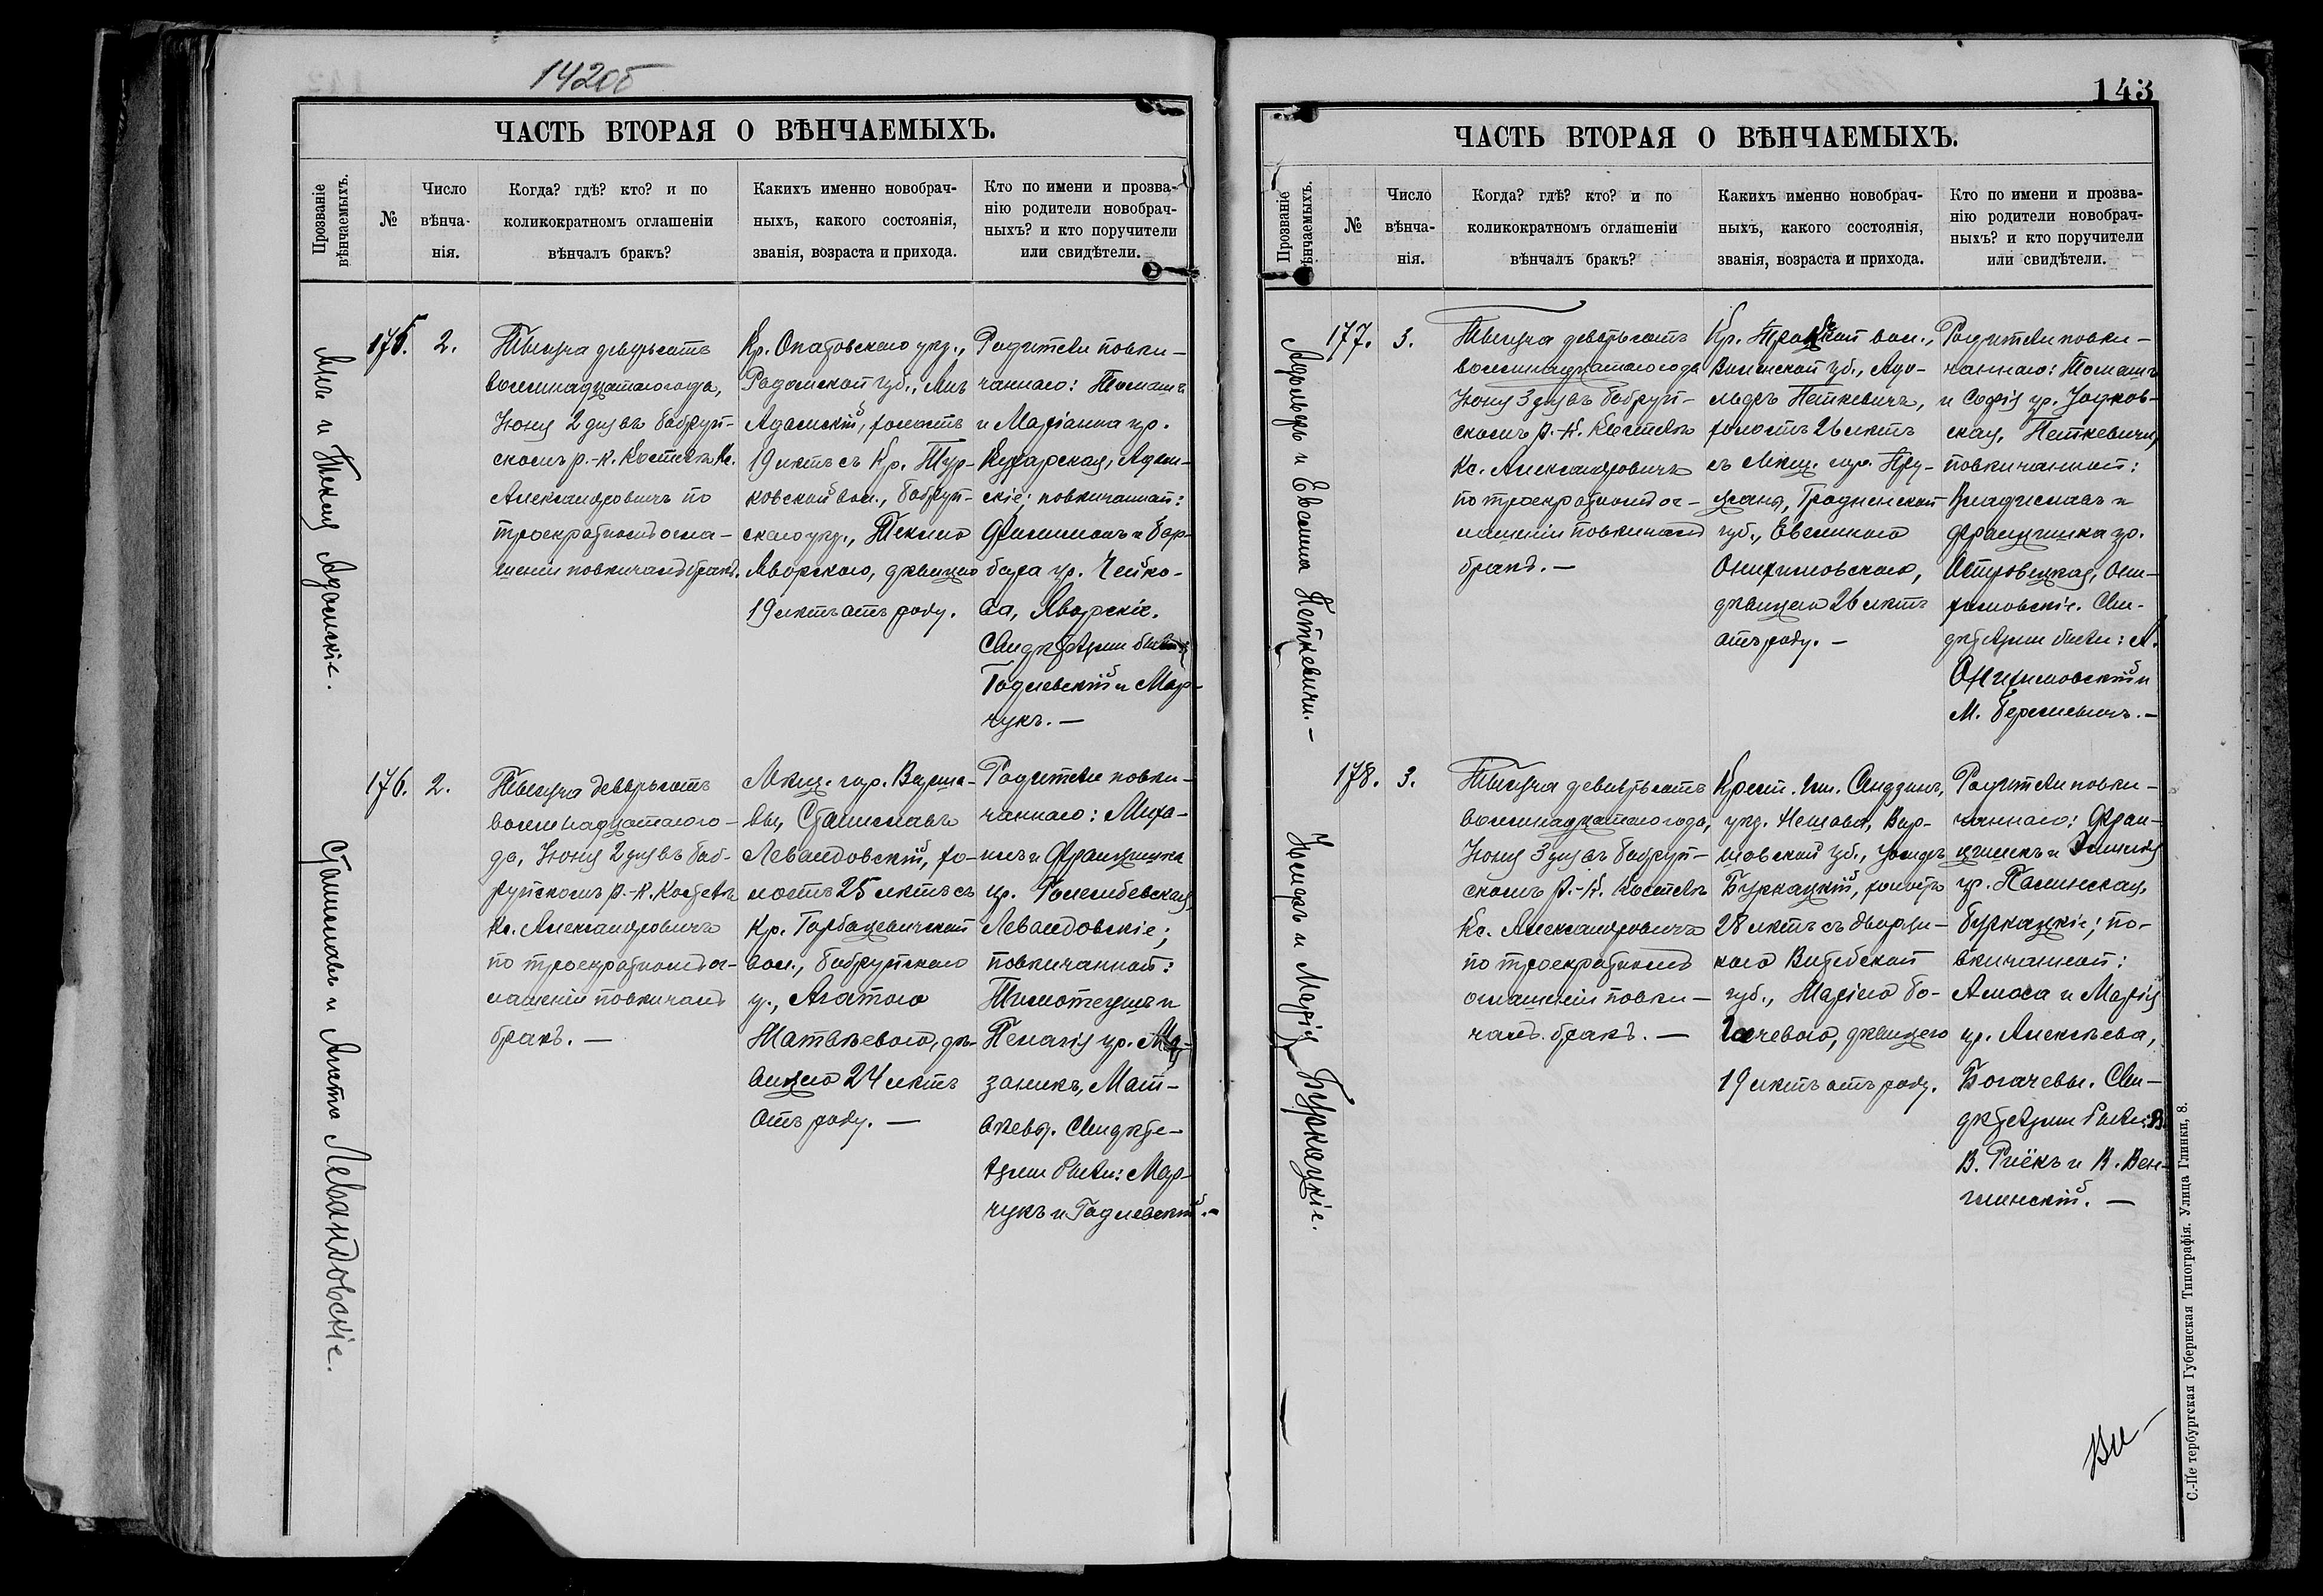 142об
ЧАСТЬ ВТОРАЯ О ВѢНЧАЕМЫХЪ.
Прозваніе
вѣнчаемыхъ.
№
Число
вѣнча-
нія.
Когда? гдѣ? кто? и по
коликократномъ оглашеніи
вѣнчалъ бракъ?
Какихъ именно новобрач-
ныхъ, какого состоянія,
званія, возраста и прихода.
Кто по имени и прозва-
нію родители новобрач-
ныхъ? и кто поручители
или свидѣтели.
и Текля Адамскіе.
175.
2.
Тысуча девятьсотъ
восемнадцатаго года,
Іюня 2 дня въ Бобруй-
скомъ р.-к. Костелѣ Кс.
Александровичъ по
троекратномъ огла-
шеніи повѣнчалъ бракъ.
Кр. Опатовскаго уѣзд.,
Радомской губ., Янъ
Адамскій, холостъ
19 лѣтъ съ Кр. Тур-
ковской вол., Бобруй-
скаго уѣзд., Теклею
Яворскою, дѣвицею
19 лѣтъ отъ роду.
Родители повѣн-
чаннаго: Томашъ
и Маріанна ур.
Кухарская, Адам-
скіе; повѣнчанной:
Филимонъ и Вар-
вара ур. Чейко-
ва, Яворскіе.
Свидѣтелями были
Годлевскій и Мар-
чукъ. —
Станиславъ и Агата Левандовскіе.
176.
2.
Тысуча девятьсотъ
восемнадцатаго го-
да, Іюня 2 дня въ Боб-
руйскомъ р.-к. Костелѣ
Кс. Александровичъ
по троекратномъ ог-
лашеніи повѣнчалъ
бракъ. —
Мѣщ. гор. Варша-
вы, Станиславъ
Левандовскій, хо-
лостъ 25 лѣтъ съ
Кр. Горбацевичской
вол., Бобруйскаго
у., Агатою
Матвѣевою, дѣ-
вицею 24 лѣтъ
отъ роду. —
Родители повѣн-
чаннаго: Миха-
илъ и Францишка
ур. Голембевская,
Левандовскіе;
повѣнчанной:
Тимотеушъ и
Пелагія ур.
заникъ, Мат-
вѣевы. Свидѣте-
лями были: Мар-
чукъ и Годлевскій. —
143
ЧАСТЬ ВТОРАЯ О ВѢНЧАЕМЫХЪ.
Прозваніе
вѣнчаемыхъ.
№
Число
вѣнча-
нія.
Когда? гдѣ? кто? и по
коликократномъ оглашеніи
вѣнчалъ бракъ?
Какихъ именно новобрач-
ныхъ, какого состоянія,
званія, возраста и прихода.
Кто по имени и прозва-
нію родители новобрач-
ныхъ? и кто поручители
или свидѣтели.
Адольфъ и Евелина Петкевичи. —
177.
3.
Тысуча девятьсотъ
восемнадцатаго года
Іюня 3 дня въ Бобруй-
скомъ р.-к. Костелѣ
Кс. Александровичъ
по троекратномъ ог-
лашеніи повѣнчалъ
бракъ. —
Кр. Трокской вол.,
Виленской губ., Адо-
льфъ Петкевичъ,
холостъ 26 лѣтъ
съ мѣщ. гор. Пру-
жаны, Гродненской
губ., Евелиною
Онихимовскою,
дѣвицею 26 лѣтъ
отъ роду. —
Родители повѣн-
чаннаго: Томашъ
и Софія ур. Уодков-
ская, Петкевичи,
повѣнчанной:
Владиславъ и
Францишка ур.
Островицкая, Они-
химовскіе. Сви-
дѣтелями были: А.
Онихимовскій и
М. Бермевичъ. —
Іосифъ и Марія Буркацкіе.
178.
3.
Тысуча девятьсотъ
восемнадцатаго года,
Іюня 3 дня въ Бобруй-
скомъ р.-к. Костелѣ
Кс. Александровичъ
по троекратномъ
оглашеніи повѣн-
чалъ бракъ. —
Крест. гм.
уѣзд. Нешава, Вар-
шавской губ., Іосифъ
Буркацкій, холостъ
28 лѣтъ съ дворян-
кою Витебской
губ., Маріею Бо-
гачевою, дѣвицею
19 лѣтъ отъ роду.
Родители повѣн-
чаннаго: Фран-
цишекъ и Эмилія
ур. Палинская,
Буркацкіе; по-
вѣнчанной:
Амоса и Марія
ур. Алексѣева,
Богачевы. Сви-
дѣтелями были: В.
В. Риёкъ и В. Вен-
глинскій. —
С.-Петербургская Губернская Типографія. Улица Глинки, 8.